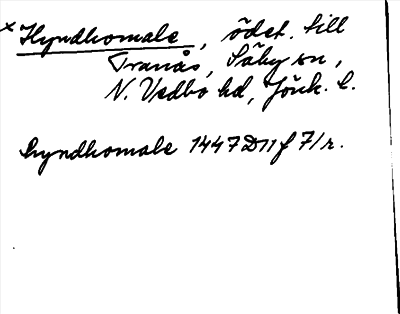 × Hyndhomale, ödet. till
Tranås, Säby sn,
N. Vedbo hd, Jönk. l.
hyndhomale 1447 D11 f 71r.